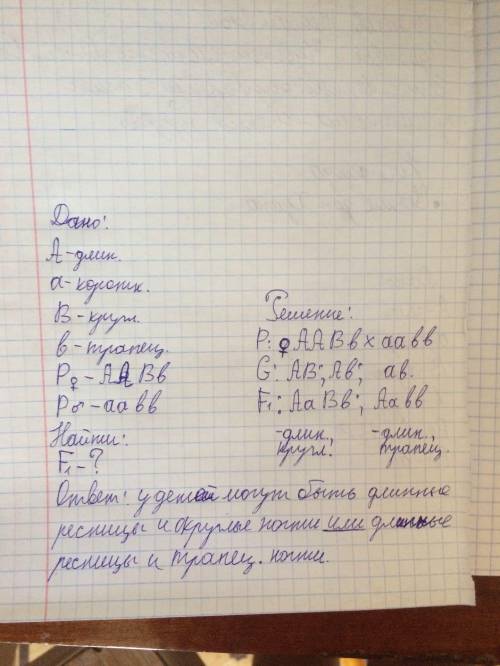 Дано:
А-длин.
а-коротк.
В-кругл.
в-трапец.
Р♀-ААВв
Р♂-аавв
Найти:
F₁-?
Решение:
Р: ♀ААВв х аавв
G: АВ; Ав; ав.
F₁: АаВв; Аавв
-длин., -длин.,
кругл. трапец.
Ответ: у детей могут быть длинные
ресницы и округлые ногти или длинные
ресницы и трапец. ногти.